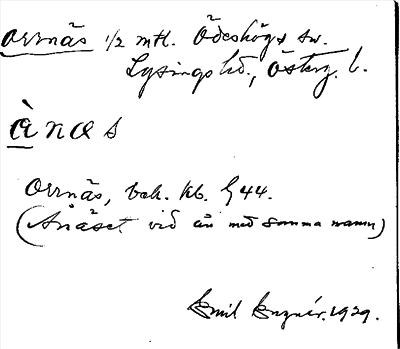 Orrnäs 1/2 mtl. Ödeshögs sn.
Lysings hd., Österg. l.
ànas
Orrnäs, bek. kb. § 44.
(Ånäset vid ån med samma namn)
Emil 1929.